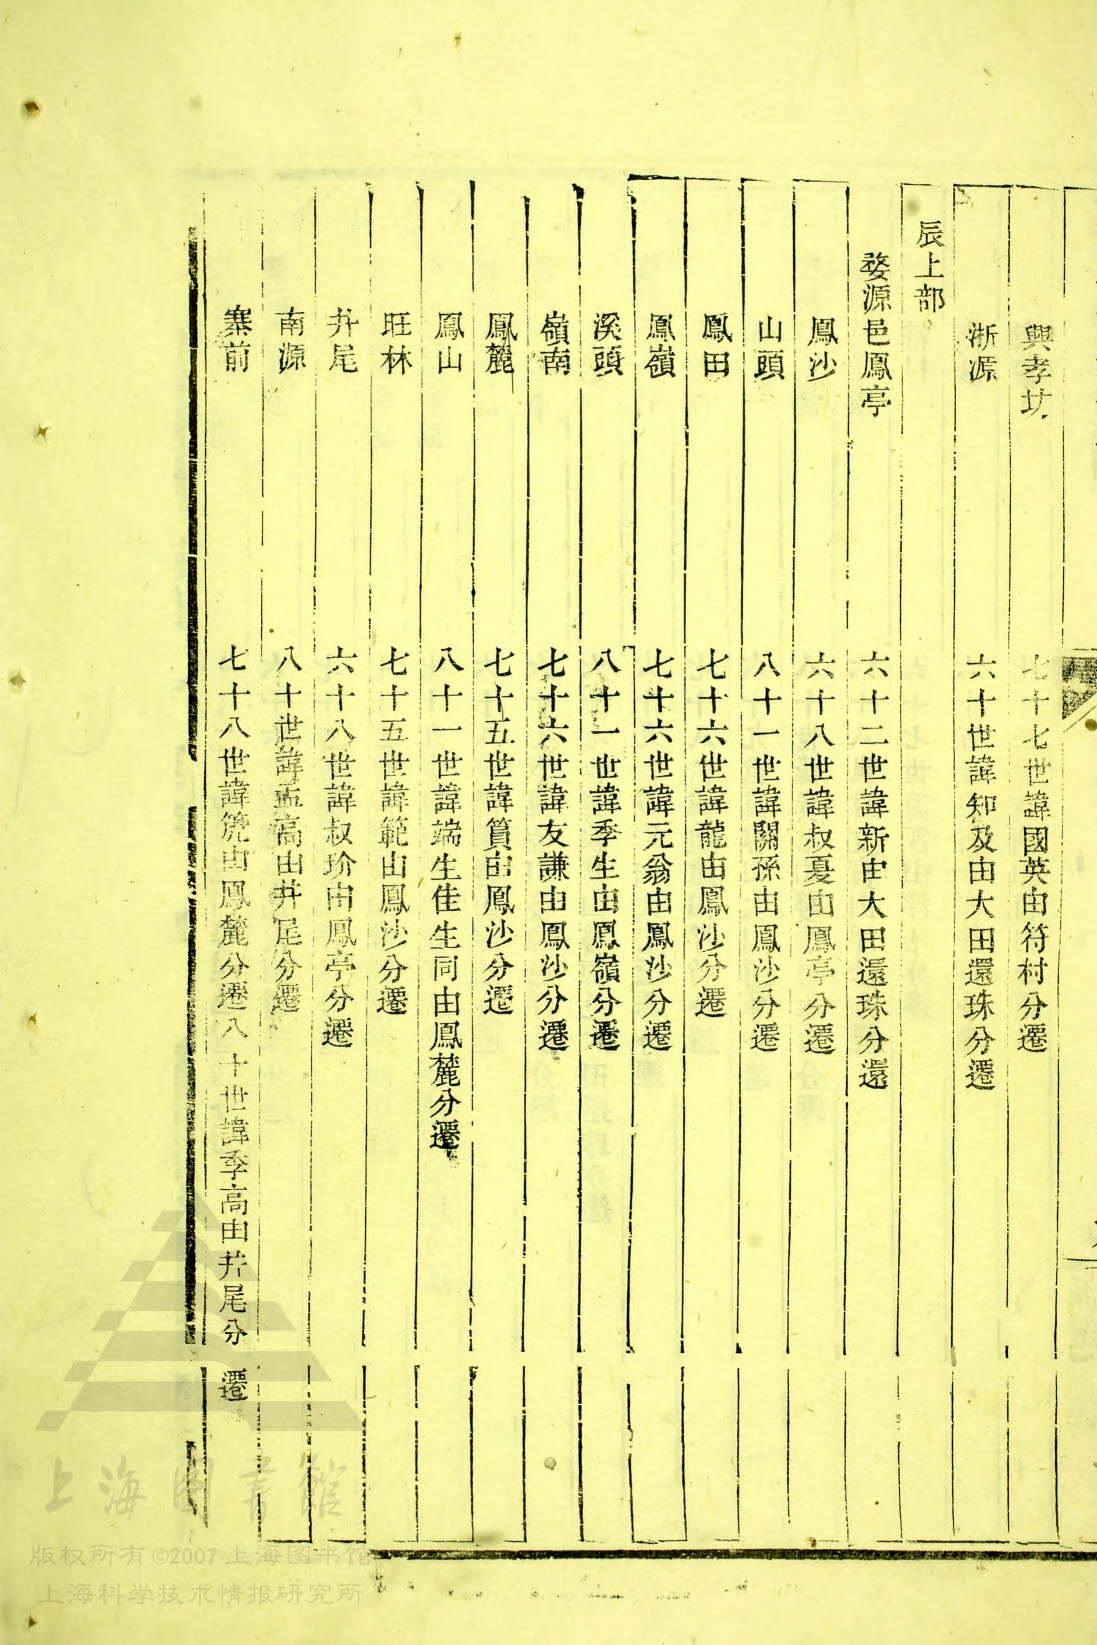 興孝坊 七十七世諱國英由符村分遷
浙源 六十世諱知及由大田還珠分遷
辰上部
婺源邑鳳亭 六十二世諱新由大田還珠分還
鳳沙 六十八世諱叔憂由鳳亭分遷
山頭 八十一世諱關孫由鳳沙分遷
鳳田 七十六世諱龍由鳳沙分遷
鳳嶺 七十六世諱元翁由鳳沙分遷
溪頭 八十一世諱季生由鳳嶺分遷
嶺南 七十六世諱友謙由鳳沙分遷
鳳麓 七十五世諱篔由鳳沙分遷
鳳山 八十一世諱端生佳生同由鳳麓分遷
旺林 七十五世諱範由鳳沙分遷
井尾 六十八世諱叔玠由鳳亭分遷
南源 八十世諱孟高由井尾分遷
寨前 七十八世諱筦由鳳麓分遷八十世諱季高由井尾分遷
上海图书馆
版权所有©2007 上海图书馆
上海科学技术情报研究所